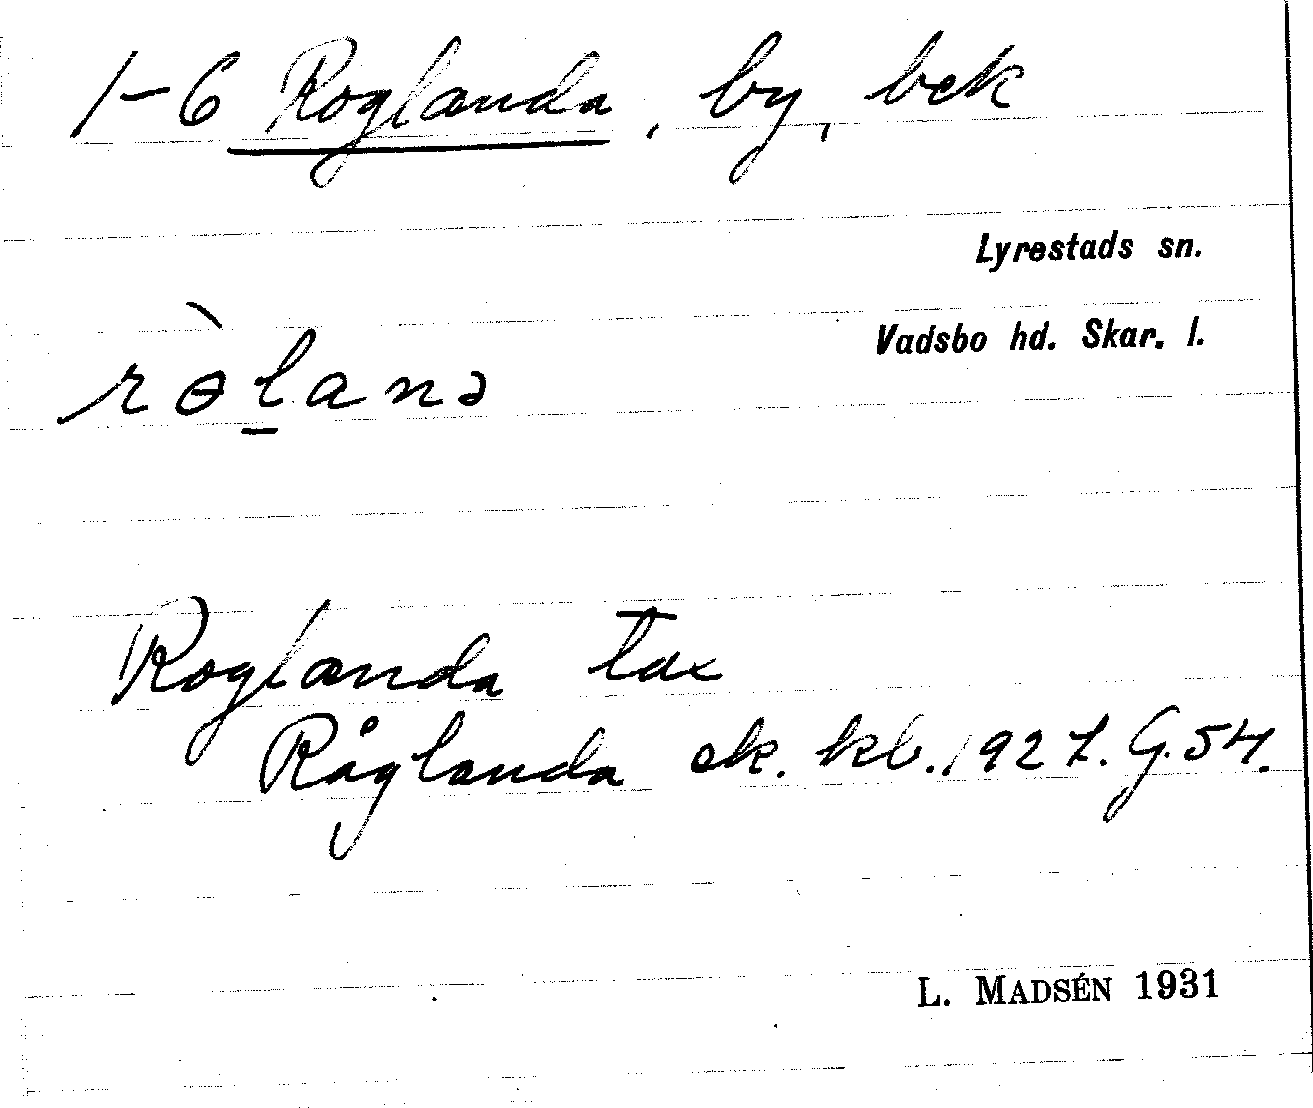 1-6 Roglanda, by, bek
Lyrestads sn.
Vadsbo hd. Skar. l.
rə̀l̠anə
Roglanda tax
Råglanda ek. kb. 1927. G. 54.
L. MADSÉN 1931